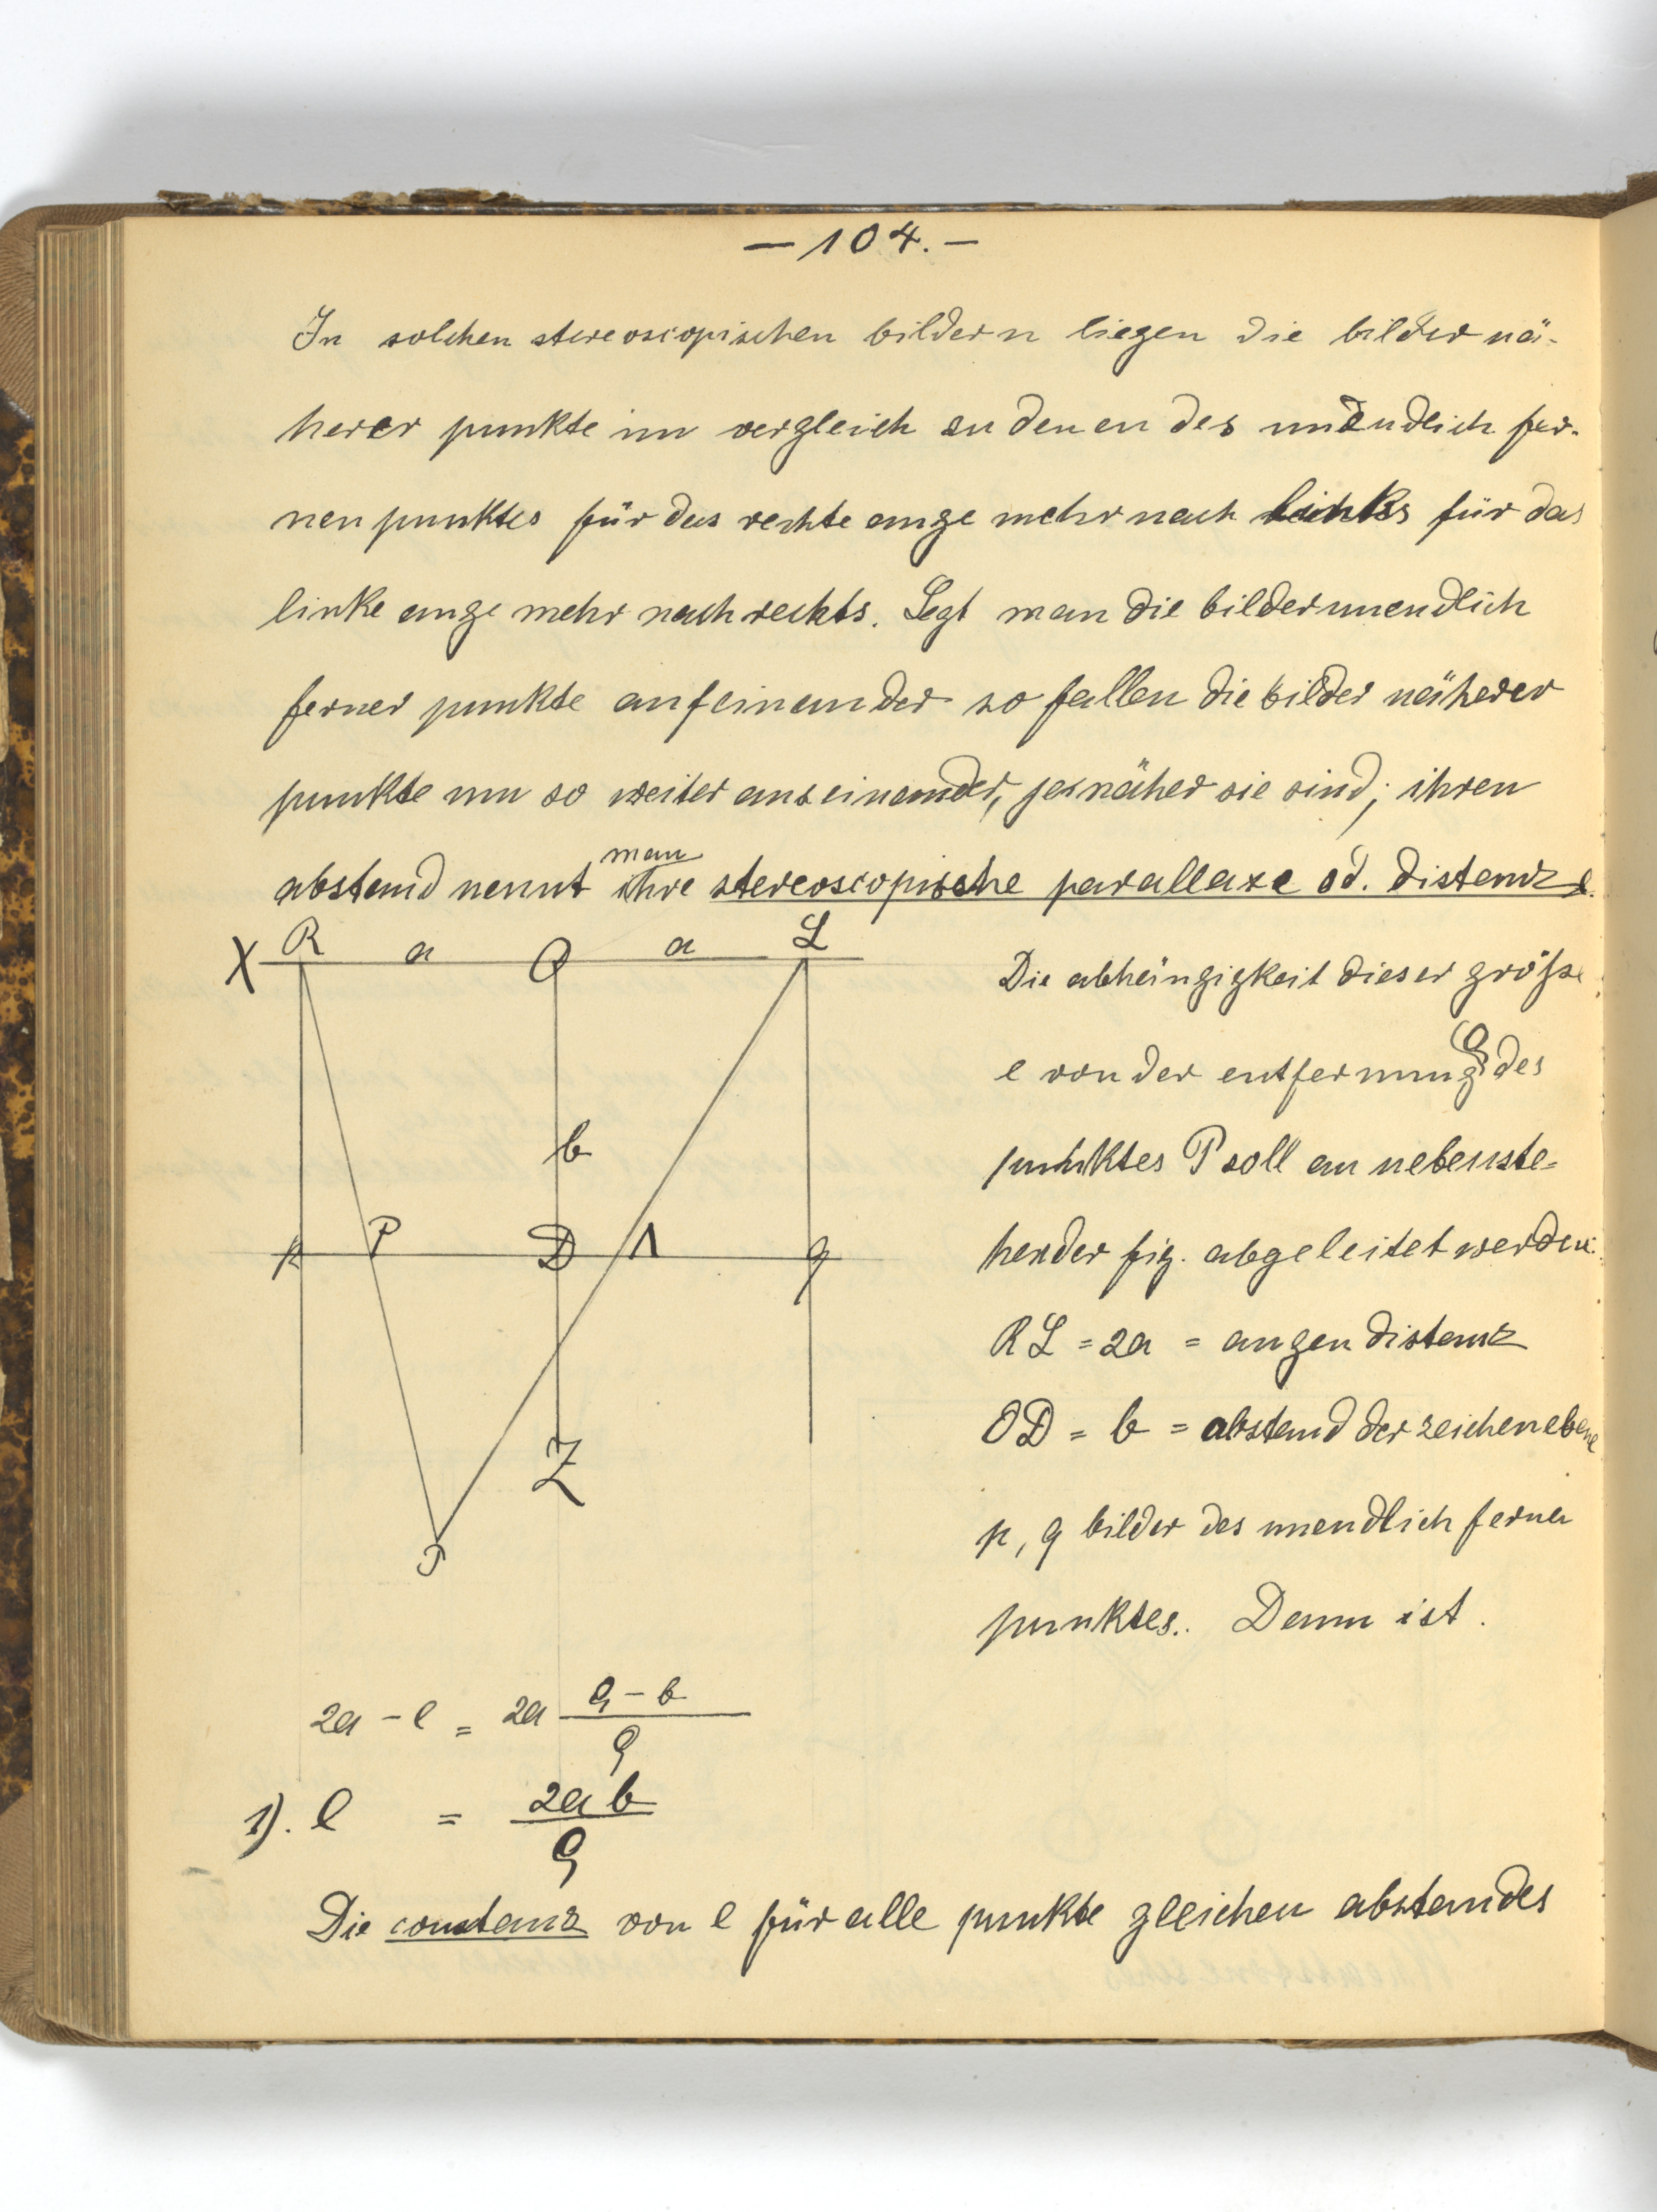 — 104. —
In solchen stereoscopischen bildern liegen die bilder nä-
herer punkte im vergleich zu denen des unendlich fer-
nen punktes für das rechte auge mehr nach links für das
linke auge mehr nach rechts. Legt man die bilder unendlich
ferner punkte aufeinander so fallen die bilder näherer
punkte um so weiter auseinander, je näher sie sind; ihren
man
abstand nennt ihre stereoscopische parallaxe od. distanz e.
X R a O a L
Die abhängigkeit dieser größe
e von der entfernung ϱ des
b
punktes P soll an nebenste-
p P D Λ q
hender fig. abgeleitet werden.
RL = 2a = augendistanz
OD = b = abstand der zeichenebene
Z
p, q bilder des unendlich ferner
P
punktes. Dann ist.
2a - e = 2a (ϱ - b) / ϱ
1). e = 2ab / ϱ
Die constanz von e für alle punkte gleichen abstandes